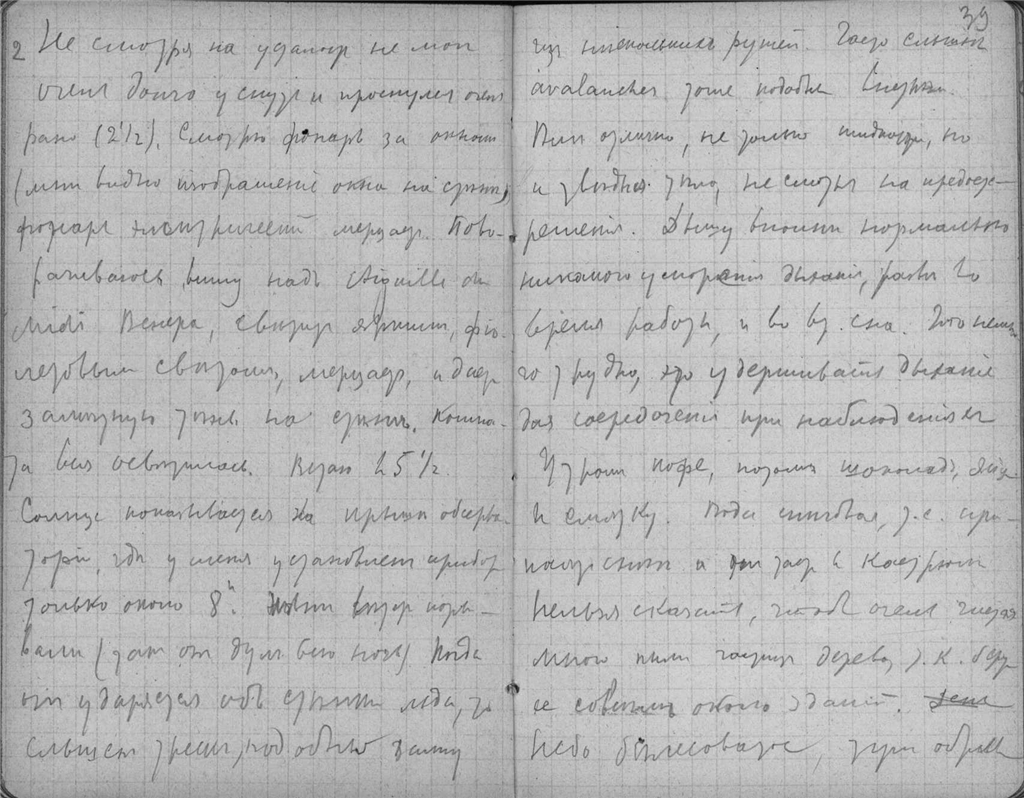 2 Не смотря на усталость не мог
очень долго уснуть и проснулся очень
рано (2 1/2). Смотрю фонарь за окном
(мне видно изображение окна на стене)
фонарь электрический мерцает. Пово-
рачиваюсь вижу надъ Aiguille du
Midi Венера, светит ярким, фіо-
летовым светом, мерцает, и дает
заметную тень на стене. Комна-
та вся осветилась. Встаю в 5 1/2
Солнце показывается на крыше обсерва-
торіи, где у меня установлен прибор
только около 8 ч. ветер поры-
вами (так он дул всю ночь) когда
он ударяется объ стенки льда, то
слышен треск, подобный залпу
39
из нескольких ружей. Часто слышны
avalanches тоже подобные
не только жидкости, но
и тело, не смотря на предосте-
режения. Дышу вполне нормально
никакого ускорения дыханія, разве во
время работы, и во вр. сна. Это немно-
го трудно, удерживать дыханіе
для сосредоточенія при наблюденіях
Утром кофе, потом шоколад,
и смузку. Вода снеговая, т.е. при-
носят снег и тает в кастрюле
Нельзя сказать, чтоб очень чистая
много пыли частиц дерева, т.к. берут
ее совсем около зданія.
Небо белесоватое, тучи обрыв